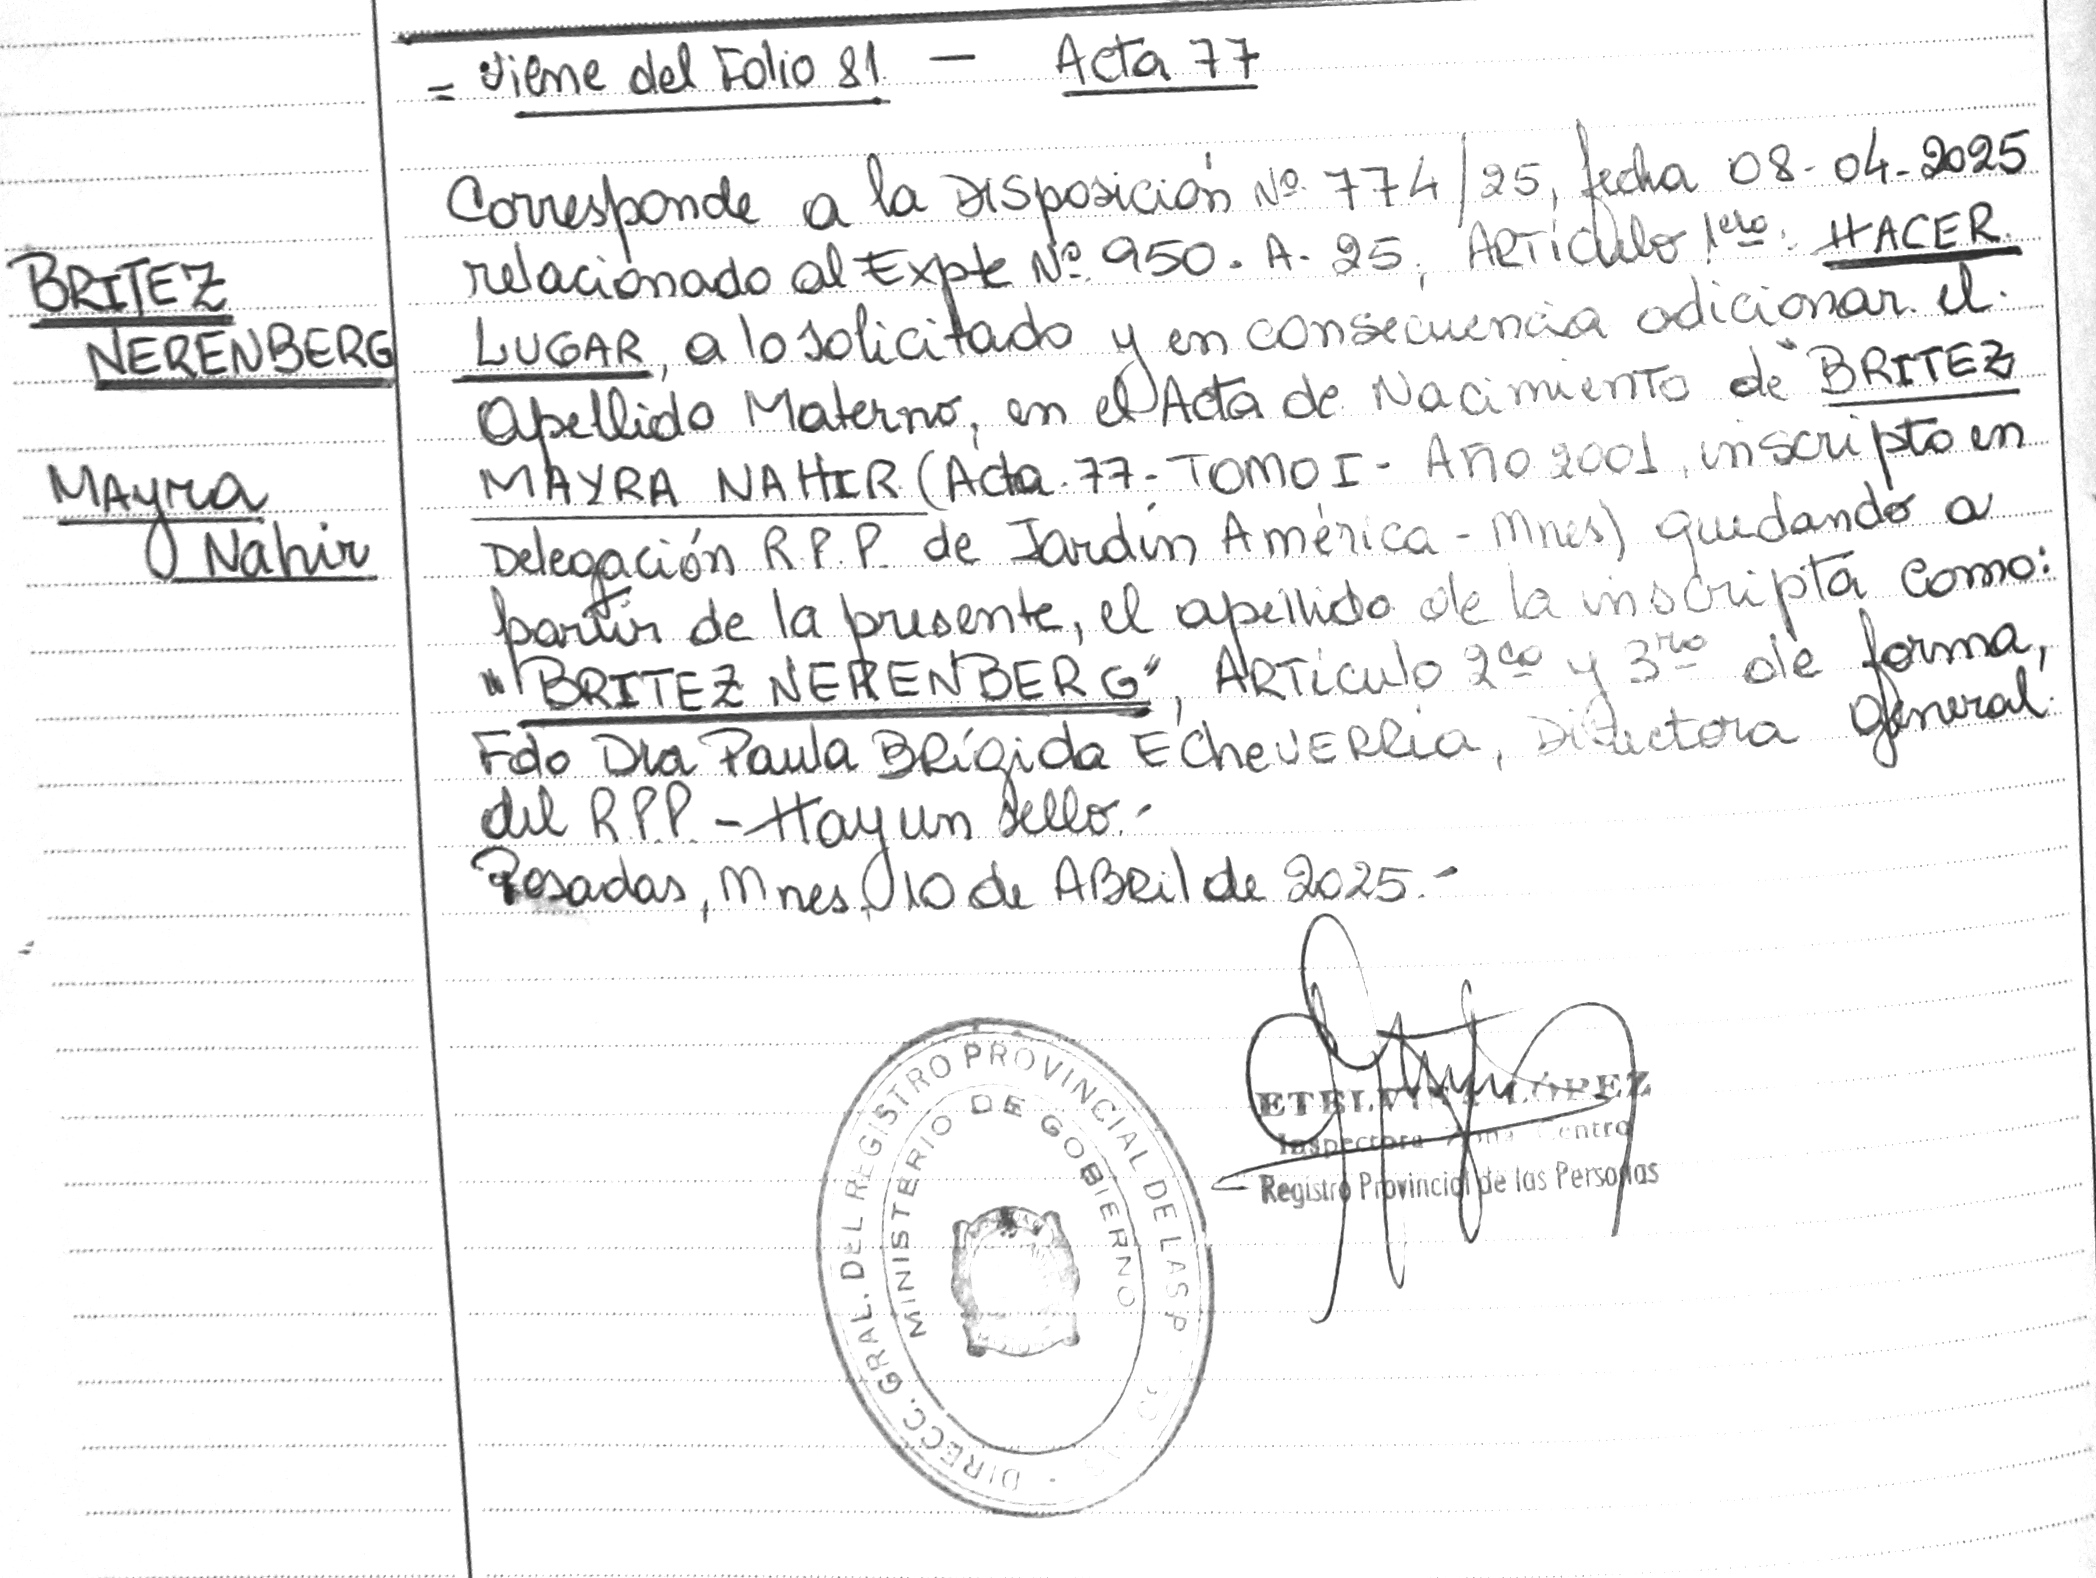 = Viene del Folio 81 — Acta 77
Corresponde a la Disposición Nº 774/25, fecha 08-04-2025
relacionado al Expte Nº 950-A-25, Artículo 1ero: HACER
BRITEZ
NERENBERG
LUGAR, a lo solicitado y en consecuencia adicionar el
Apellido Materno, en el Acta de Nacimiento de "BRITEZ
MAYRA NAHIR (Acta 77- TOMO I - Año 2001, inscripto en
Mayra
Nahir
Delegación R.P.P. de Jardín América - Mnes) quedando a
partir de la presente, el apellido de la inscripta como:
"BRITEZ NERENBERG", Artículo 2do y 3ro de forma,
Fdo Dra Paula Brígida Echeverria, Directora General
del R.P.P. - Hay un sello.-
Posadas, Mnes, 10 de Abril de 2025.-
DIRECC. GRAL. DEL REGISTRO PROVINCIAL DE LAS P
MINISTERIO DE GOBIERNO
ETELVINA LÓPEZ
Inspectora Zona Centro
Registro Provincial de las Personas